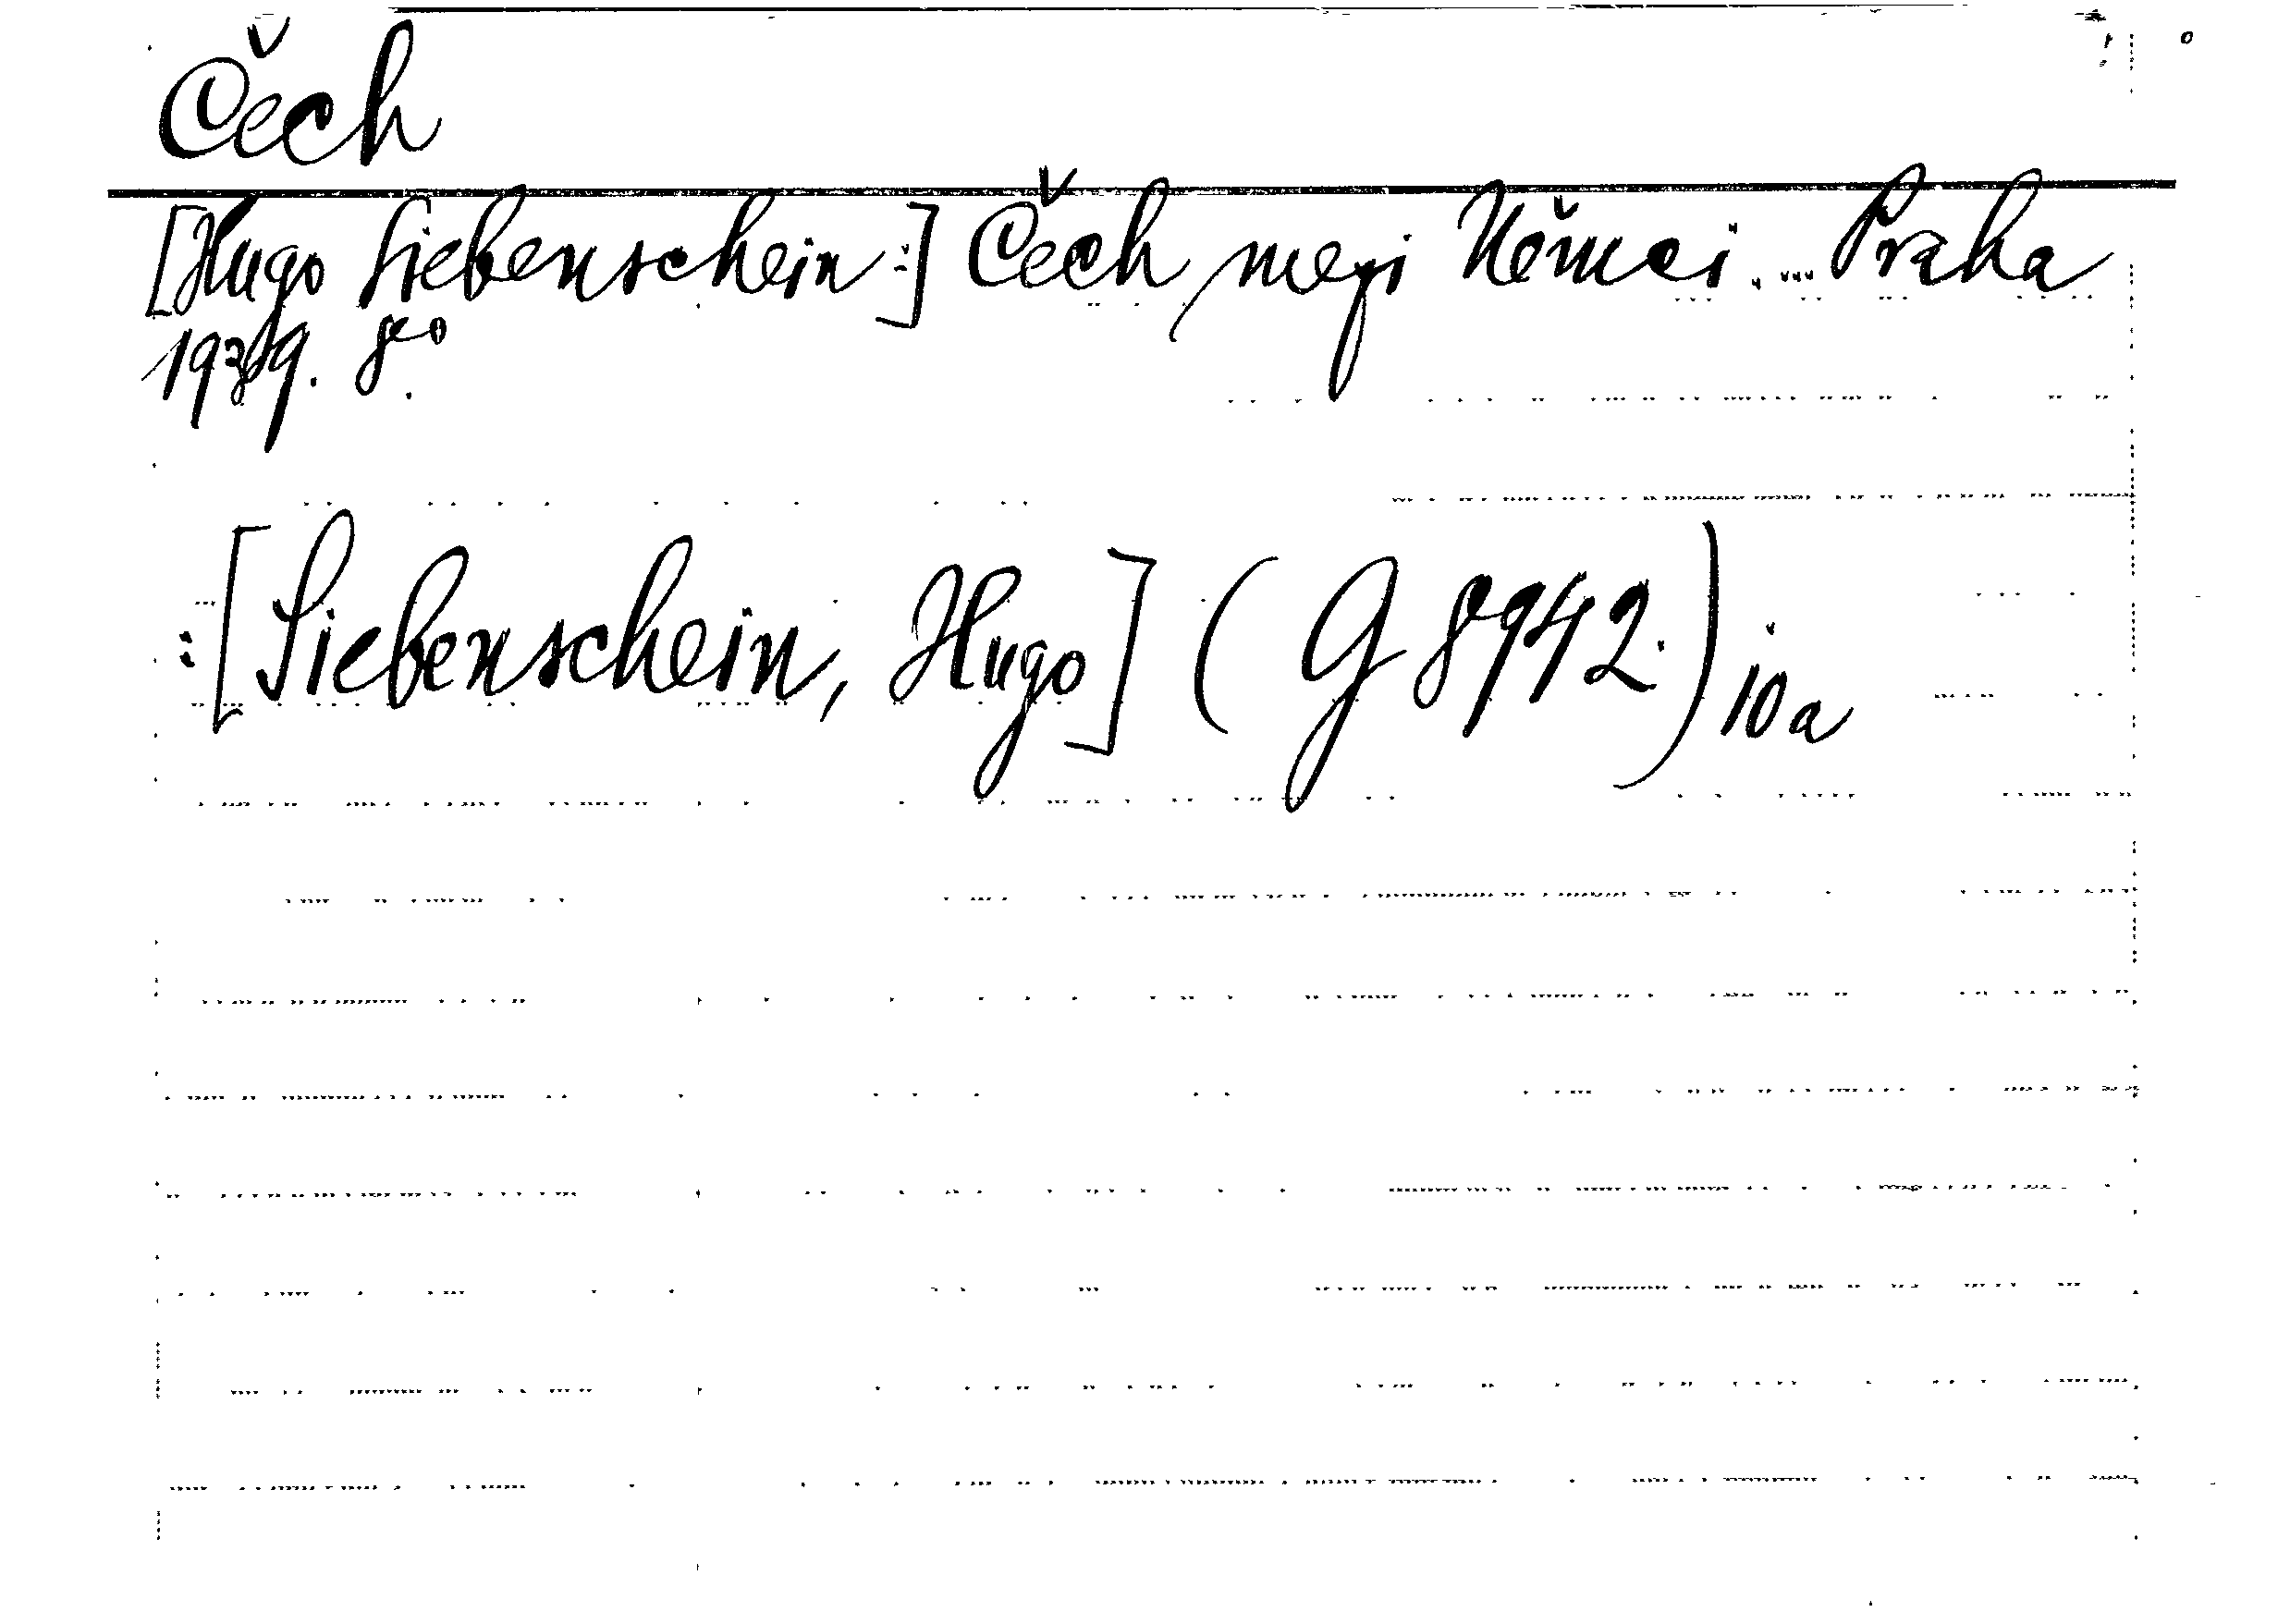 Čech
[Hugo Siebenschein:] Čech mezi Němci. ... Praha
1939. 8o.
:[Siebenschein, Hugo] (G 8942.) 10a